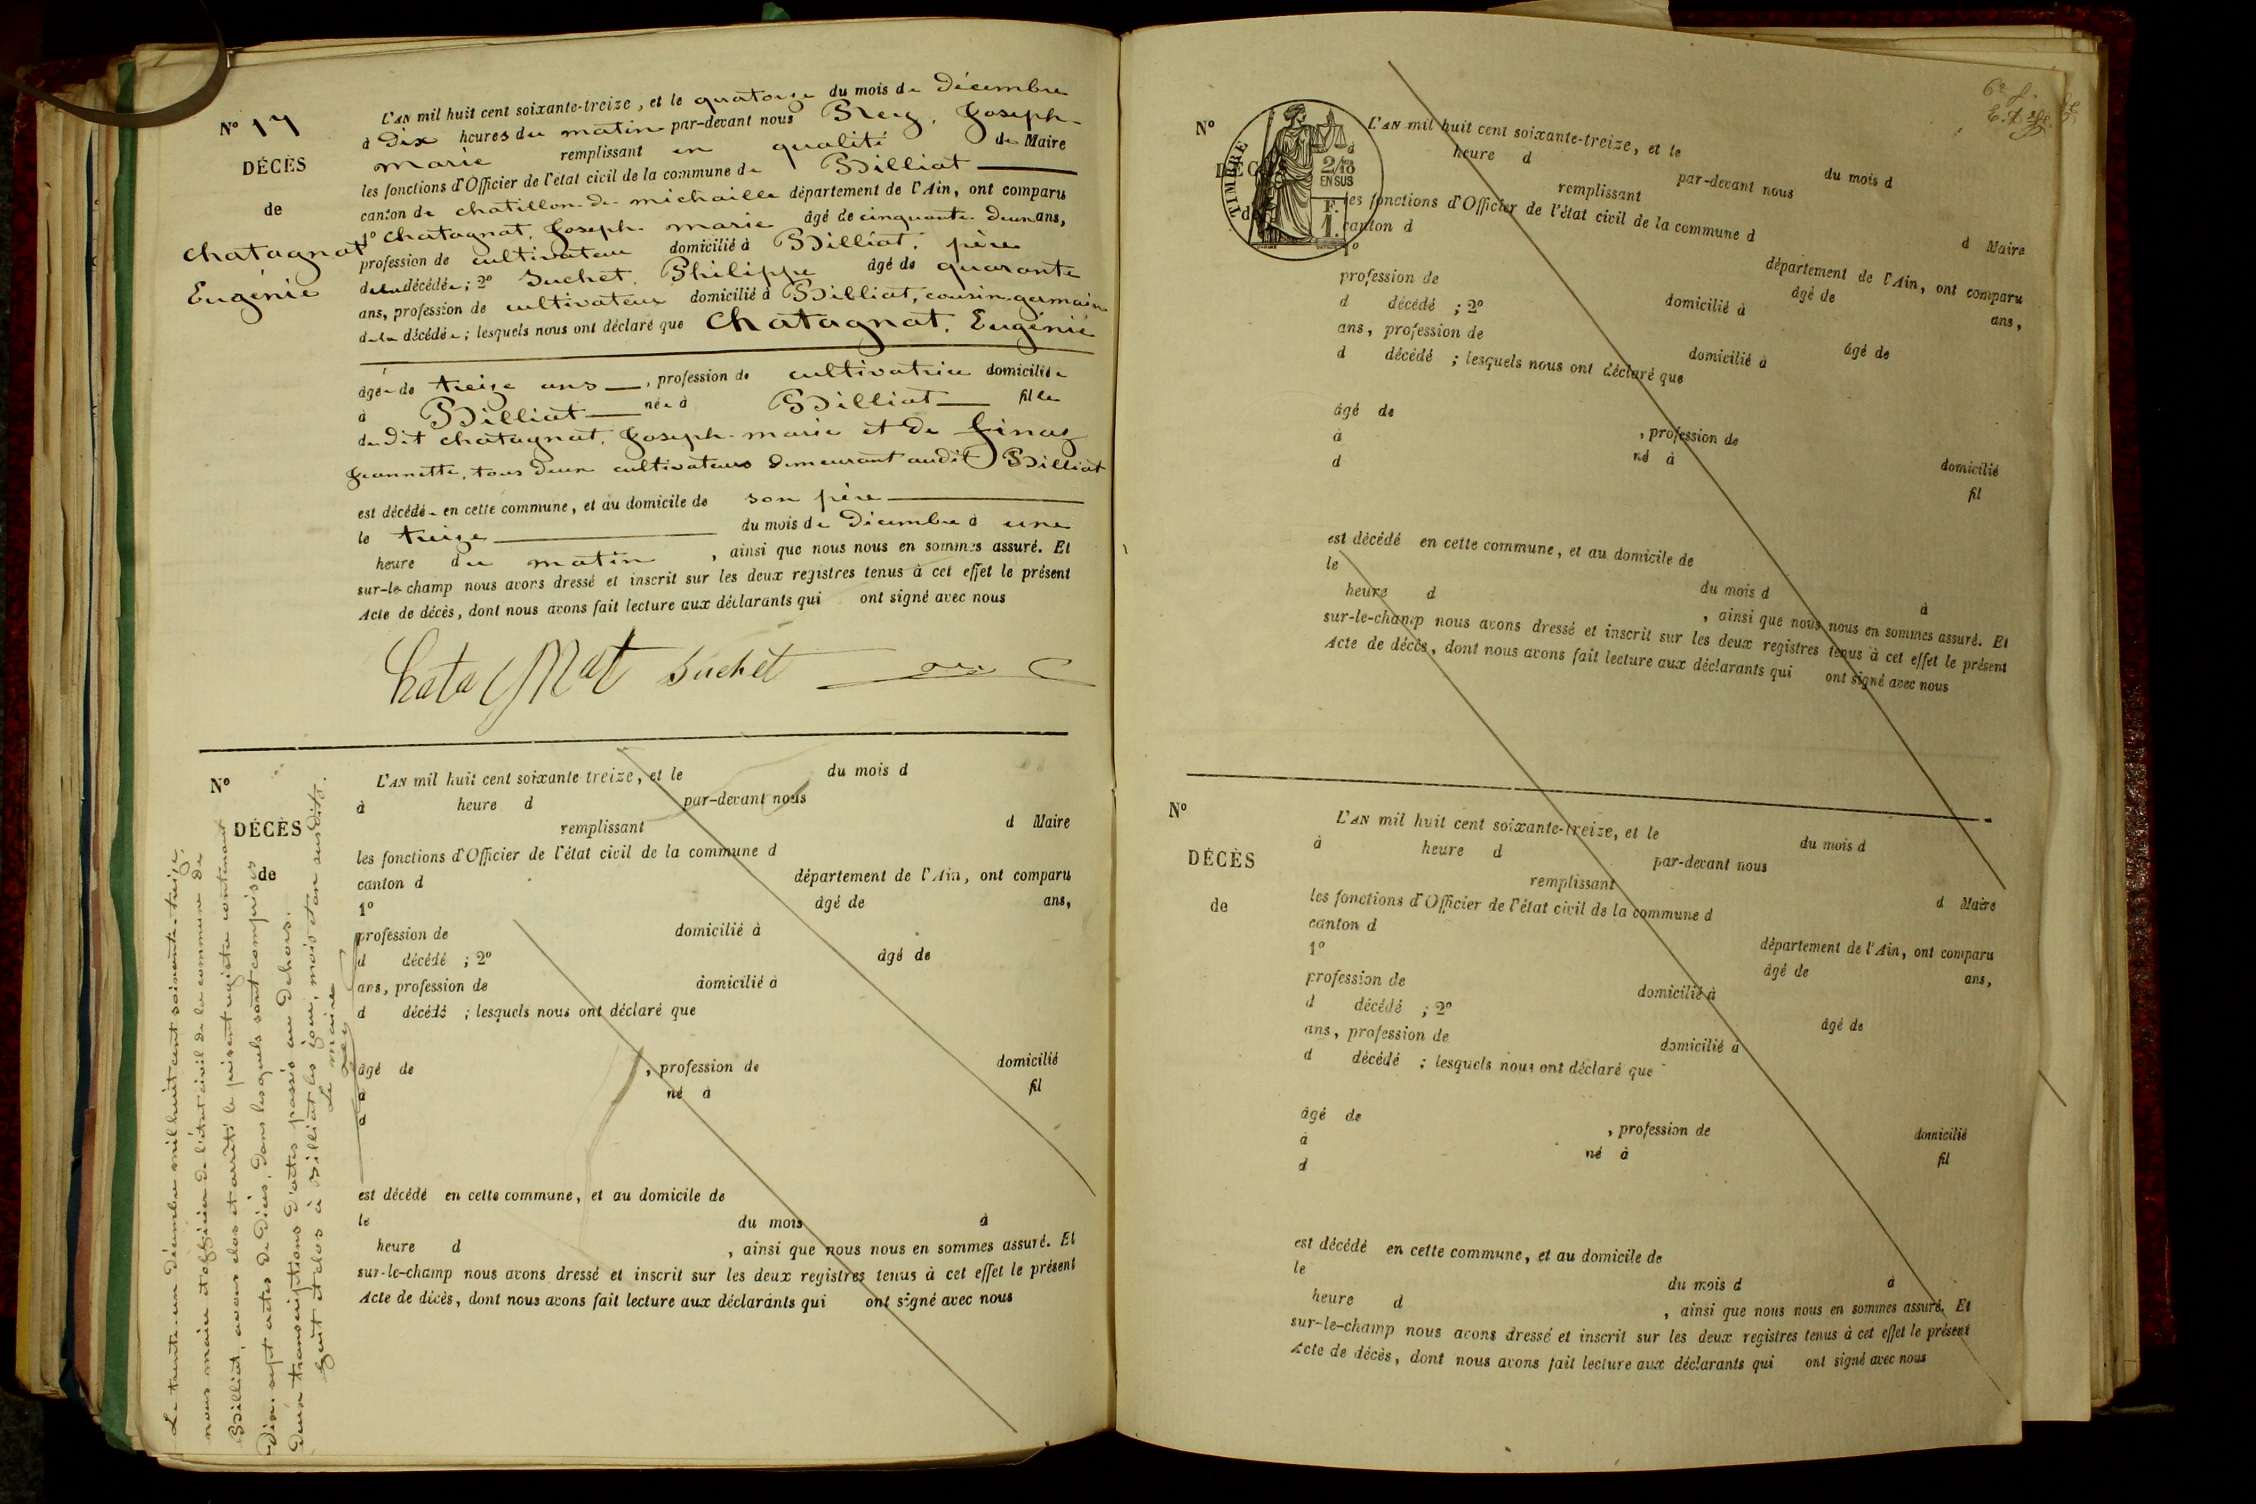 N° 17
DÉCÈS
de
Chatagnat
Eugénie
L'AN mil huit cent soixante-treize, et le quatorze du mois de Décembre
à Dix heures du matin par-devant nous Rey, Joseph-
marie remplissant en qualité de Maire
les fonctions d'Officier de l'état civil de la commune de Billiat
canton de chatillon-de-michaille département de l'Ain, ont comparu
1° Chatagnat, Joseph-marie âgé de cinquante-deux ans,
profession de cultivateur domicilié à Billiat, père
de la décédée ; 2° Suchet, Philippe âgé de quarante
ans, profession de cultivateur domicilié à Billiat, cousin-germain
de la décédée ; lesquels nous ont déclaré que Chatagnat, Eugénie
âgée de treize ans , profession de cultivatrice domiciliée
à Billiat née à Billiat fille
de dit chatagnat, Joseph-marie et de Ginaz
Jeannette, tous deux cultivateurs demeurant audit Billiat
est décédée en cette commune, et au domicile de son père
le treize du mois de Décembre à une
heure du matin , ainsi que nous nous en sommes assuré. Et
sur-le-champ nous avons dressé et inscrit sur les deux registres tenus à cet effet le présent
Acte de décès, dont nous avons fait lecture aux déclarants qui ont signé avec nous
Chatagnat Suchet
N°
DÉCÈS
de
L'AN mil huit cent soixante treize, et le du mois d
à heure d par-devant nous
remplissant d Maire
les fonctions d'Officier de l'état civil de la commune d
canton d département de l'Ain, ont comparu
1° âgé de ans,
profession de domicilié à
d décédé ; 2° âgé de
ans, profession de domicilié à
d décédé ; lesquels nous ont déclaré que
âgé de , profession de domicilié
à né à fil
d
est décédé en cette commune, et au domicile de
le du mois à
heure d , ainsi que nous nous en sommes assuré. Et
sur-le-champ nous avons dressé et inscrit sur les deux registres tenus à cet effet le présent
Acte de décès, dont nous avons fait lecture aux déclarants qui ont signé avec nous
Le trente-un Décembre mil huit cent soixante-treize,
nous maire et officier de l'état civil de la commune de
Billiat, avons clos et arrêté le présent registre contenant
Dix-sept actes de Décès, dans lesquels sont comprises
Deux transcriptions d'actes passés au dehors.
Fait et clos à Billiat les jour, mois et an susdits.
Le maire
Rey
N°
DÉCÈS
de
TIMBRE
2/10
EN SUS
F.
1.
L'AN mil huit cent soixante-treize, et le du mois d
heure d par-devant nous
remplissant d Maire
les fonctions d'Officier de l'état civil de la commune d
canton d département de l'Ain, ont comparu
1° âgé de ans,
profession de domicilié à
d décédé ; 2° âgé de
ans, profession de domicilié à
d décédé ; lesquels nous ont déclaré que
âgé de , profession de domicilié
à né à fil
d
est décédé en cette commune, et au domicile de
le du mois d à
heure d , ainsi que nous nous en sommes assuré. Et
sur-le-champ nous avons dressé et inscrit sur les deux registres tenus à cet effet le présent
Acte de décès, dont nous avons fait lecture aux déclarants qui ont signé avec nous
N°
DÉCÈS
de
L'AN mil huit cent soixante-treize, et le du mois d
à heure d par-devant nous
remplissant d Maire
les fonctions d'Officier de l'état civil de la commune d
canton d département de l'Ain, ont comparu
1° âgé de ans,
profession de domicilié à
d décédé ; 2° âgé de
ans, profession de domicilié à
d décédé ; lesquels nous ont déclaré que
âgé de , profession de domicilié
à né à fil
d
est décédé en cette commune, et au domicile de
le du mois d à
heure d , ainsi que nous nous en sommes assuré. Et
sur-le-champ nous avons dressé et inscrit sur les deux registres tenus à cet effet le présent
Acte de décès, dont nous avons fait lecture aux déclarants qui ont signé avec nous